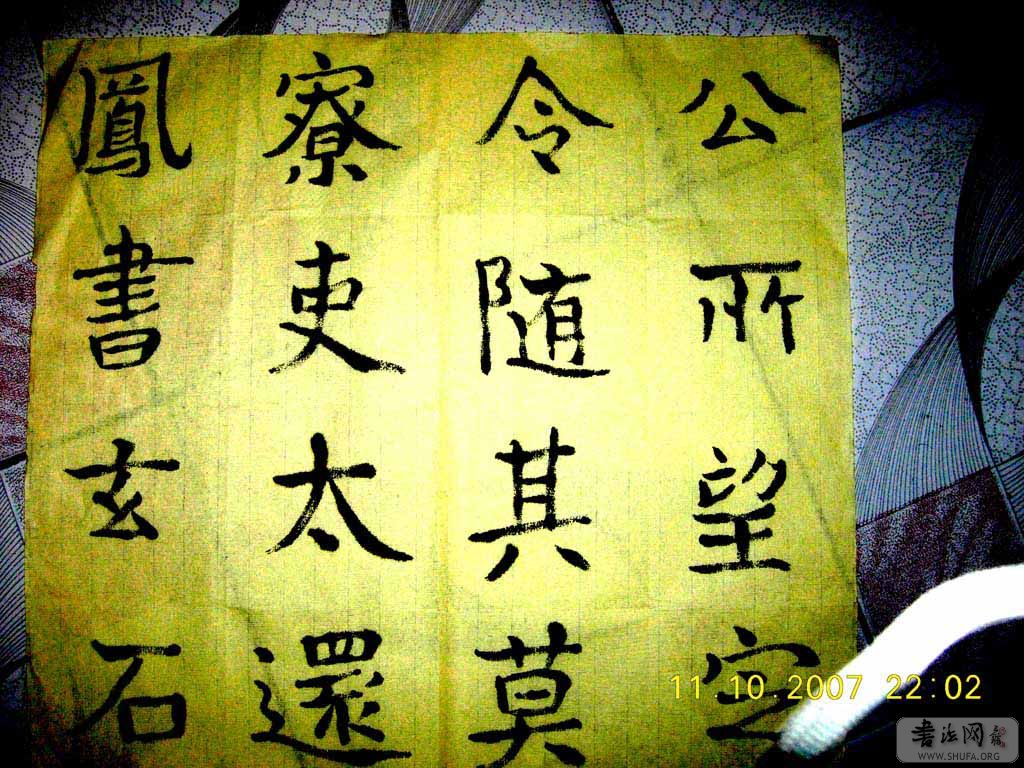 公所望
令随其莫
寮吏太還
鳳書玄石
11.10.2007 22:02
书法网
WWW.SHUFA.ORG